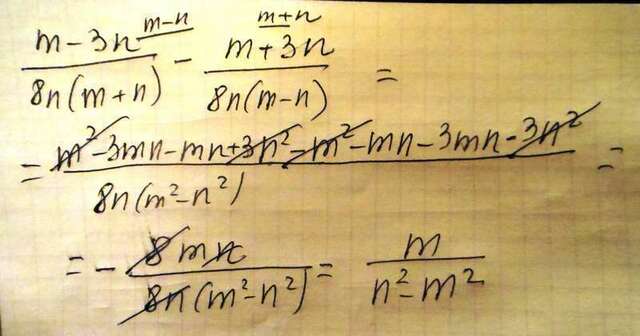 m-n m+n
(m-3n)/(8n(m+n)) - (m+3n)/(8n(m-n)) =
= (m²-3mn-mn+3n²-m²-mn-3mn-3n²)/(8n(m²-n²)) =
= - 8mn/(8n(m²-n²)) = m/(n²-m²)